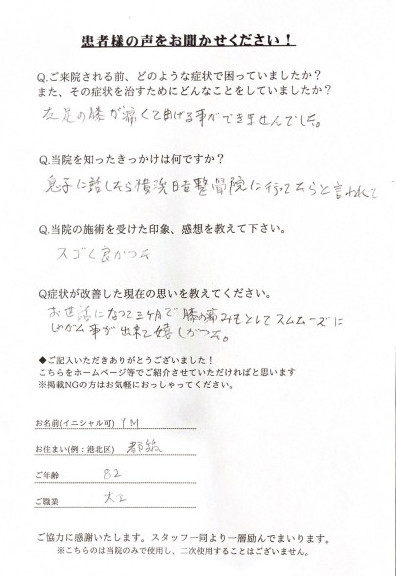 患者様の声をお聞かせください！
Q.ご来院される前、どのような症状で困っていましたか？
また、その症状を治すためにどんなことをしていましたか？
左足の膝が痛くて曲げる事ができませんでした。
Q.当院を知ったきっかけは何ですか？
息子に話したら横浜日吉整骨院に行ってたらと言われて
Q.当院の施術を受けた印象、感想を教えて下さい。
スゴく良かった
Q症状が改善した現在の思いを教えてください。
お世話になって三ヶ月で膝の痛みもとしてスムムーズに
しゃがム事が出来て嬉しかった。
◆ご記入いただきありがとうございました！
こちらをホームページ等でご紹介させていただければと思います
※掲載NGの方はお気軽におっしゃってください。
お名前(イニシャル可) YM
お住まい(例：港北区) 都筑
ご年齢 82
ご職業 大工
ご協力に感謝いたします。スタッフ一同より一層励んでまいります。
※こちらのは当院のみで使用し、二次使用することはございません。